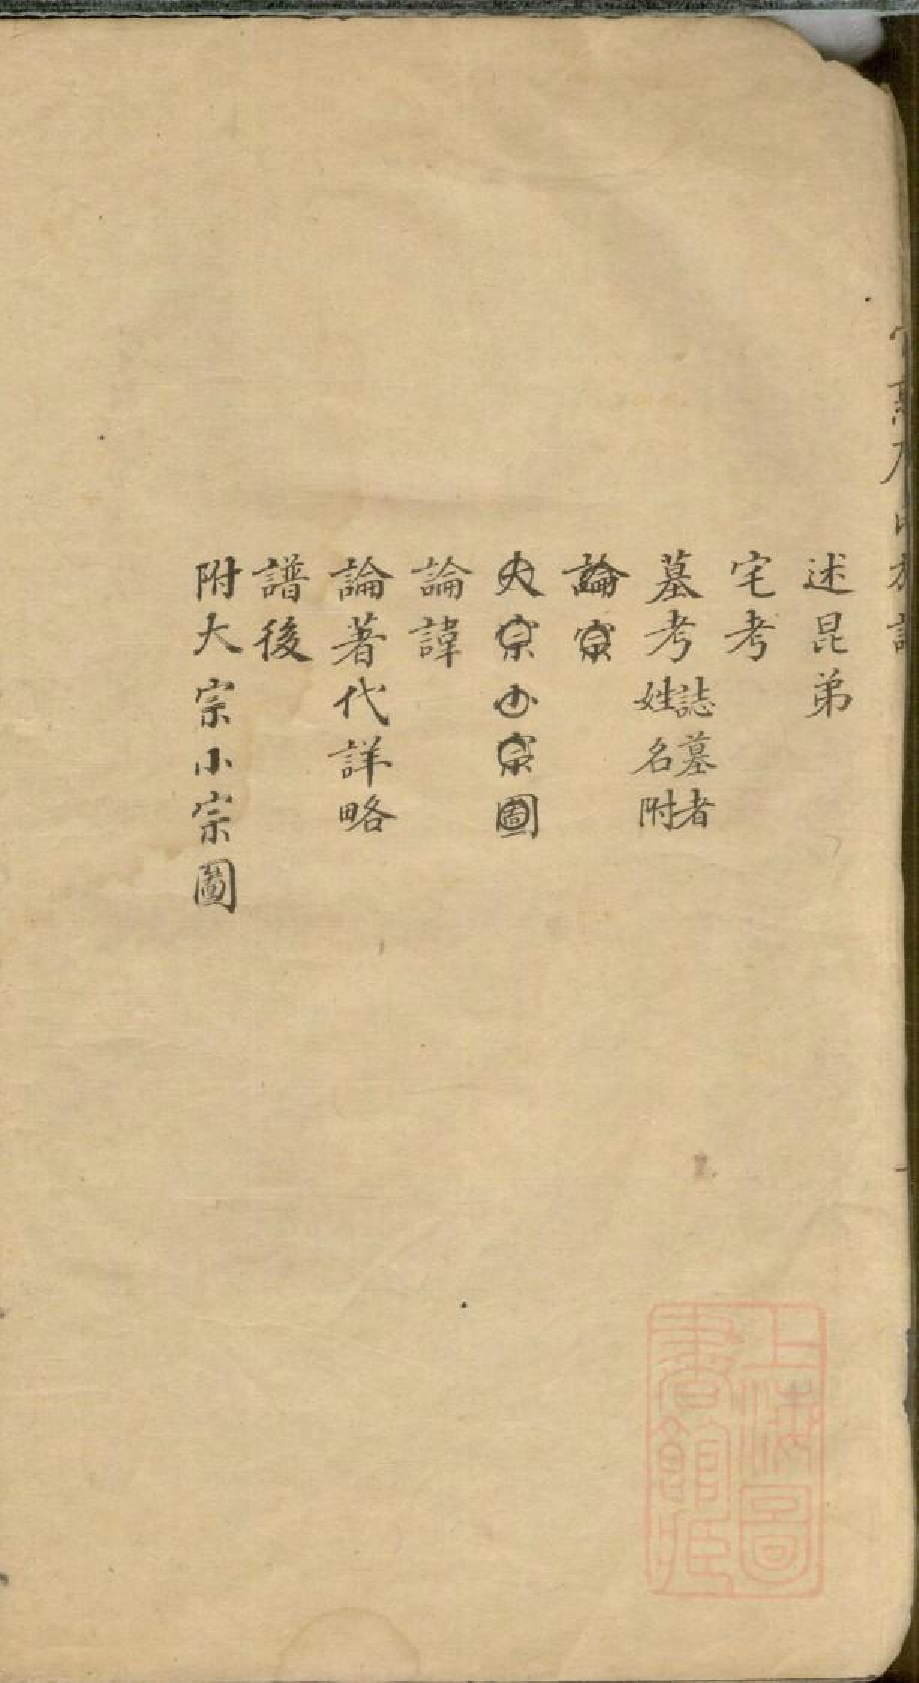 述昆弟
宅考
墓考誌墓者姓名附
論宗
大宗小宗圖
論諱
論著代詳略
譜後
附大宗小宗圖
上海圖書館藏